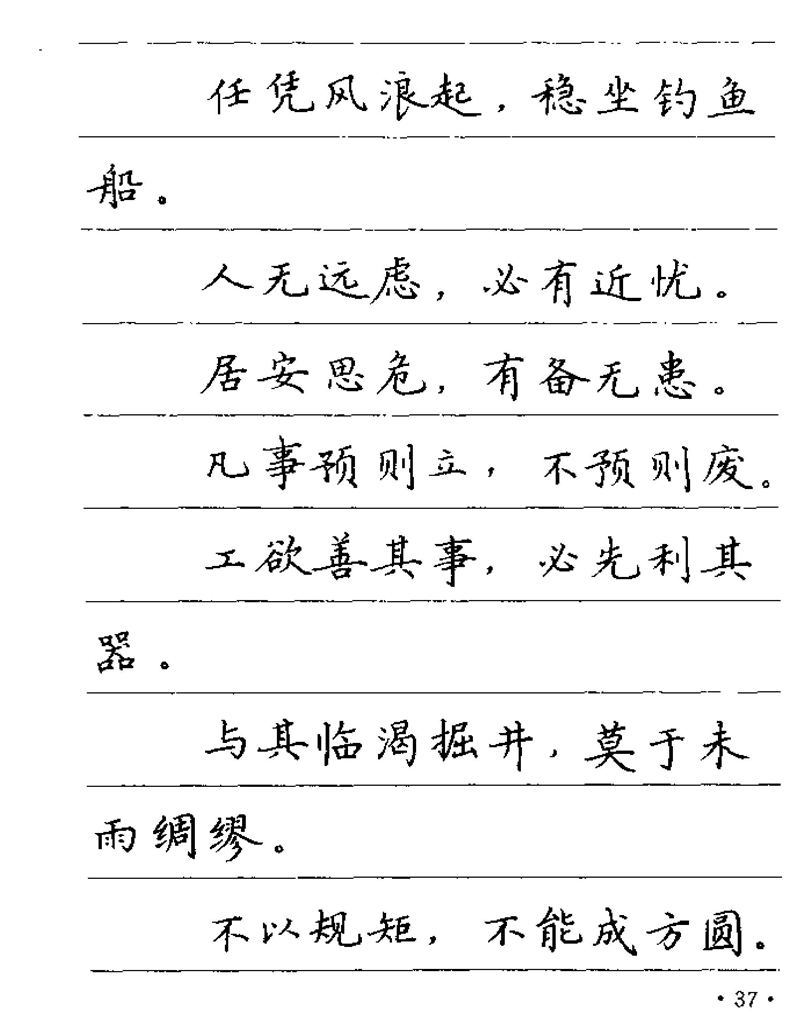 任凭风浪起，稳坐钓鱼
船。
人无远虑，必有近忧。
居安思危，有备无患。
凡事预则立，不预则废。
工欲善其事，必先利其
器。
与其临渴掘井，莫于未
雨绸缪。
不以规矩，不能成方圆。
·37·